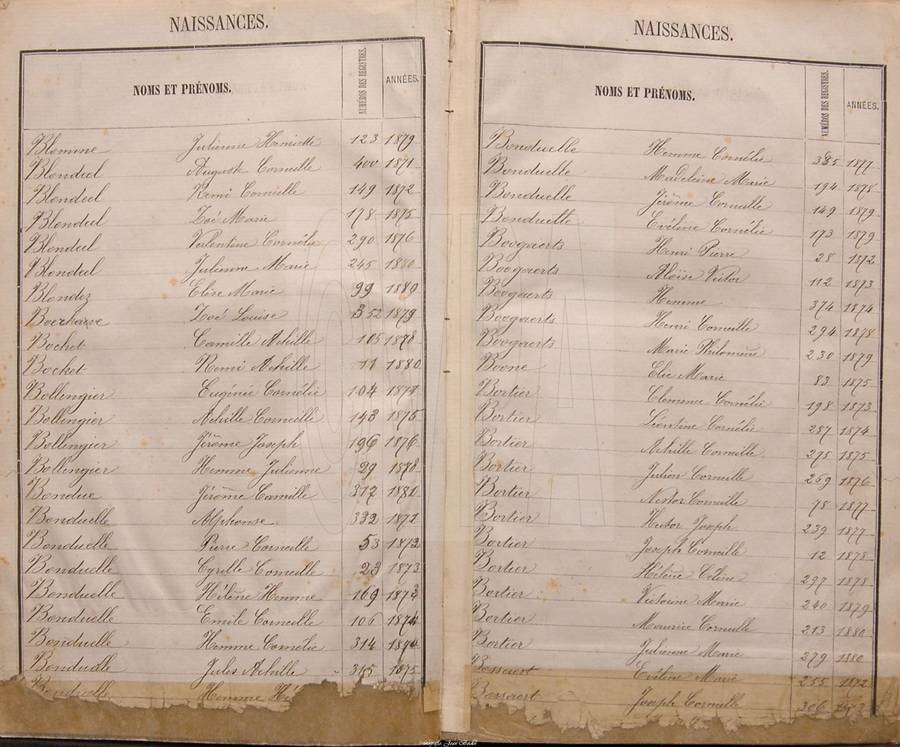 NAISSANCES.
NOMS ET PRÉNOMS. NUMÉROS DES REGISTRES. ANNÉES.
Blomme Julienne Henriette 123 1879
Blondeel August Corneille 400 1871
Blondeel Remi Corneille 149 1872
Blondeel Zoé Marie 178 1875
Blondeel Valentine Cornélie 290 1876
Blondeel Julienne Marie 245 1880
Blondez Elise Marie 99 1880
Zoé Louise 352 1879
Bochet Camille Achille 105 1878
Bocket Remi Achille 11 1880
Bollengier Eugénie Cornélie 104 1871
Bollengier Achille Corneille 143 1875
Bollengier Jérôme Joseph 196 1876
Bollengier Hemme Julienne 29 1878
Bondue Jérôme Camille 312 1880
Bonduelle Alphonse 332 1871
Bonduelle Pierre Corneille 53 1872
Bonduelle Cyrille Corneille 23 1873
Bonduelle Hélène Hemme 169 1873
Bonduelle Emile Corneille 106 1874
Bonduelle Hemme Cornélie 314 1874
Bonduelle Jules Achille 1875
Bonduelle Hemme
NAISSANCES.
NOMS ET PRÉNOMS. NUMÉROS DES REGISTRES. ANNÉES.
Bonduelle Hemme Cornélie 385 1877
Bonduelle Madeleine Marie 194 1878
Bonduelle Jérôme Corneille 149 1879
Bonduelle Eveline Cornélie 173 1879
Boogaerts Henri Pierre 28 1872
Boogaerts Aloïse Victor 112 1873
Boogaerts Hemme 374 1874
Boogaerts Henri Corneille 294 1878
Boogaerts Marie Philomène 230 1879
Boone Elie Marie 83 1875
Bortier Clemence Cornélie 198 1873
Bortier Léontine Cornélie 287 1874
Bortier Achille Corneille 275 1875
Bortier Julien Corneille 259 1876
Bortier Nestor Corneille 78 1877
Bortier Hector Joseph 239 1877
Bortier Joseph Corneille 12 1878
Bortier Hélène Celine 297 1878
Bortier Victorine Marie 240 1879
Bortier Maurice Corneille 213 1880
Bortier Julienne Marie 279 1880
Bossaert Eveline Marie 255 1872
Bossaert Joseph Corneille 306